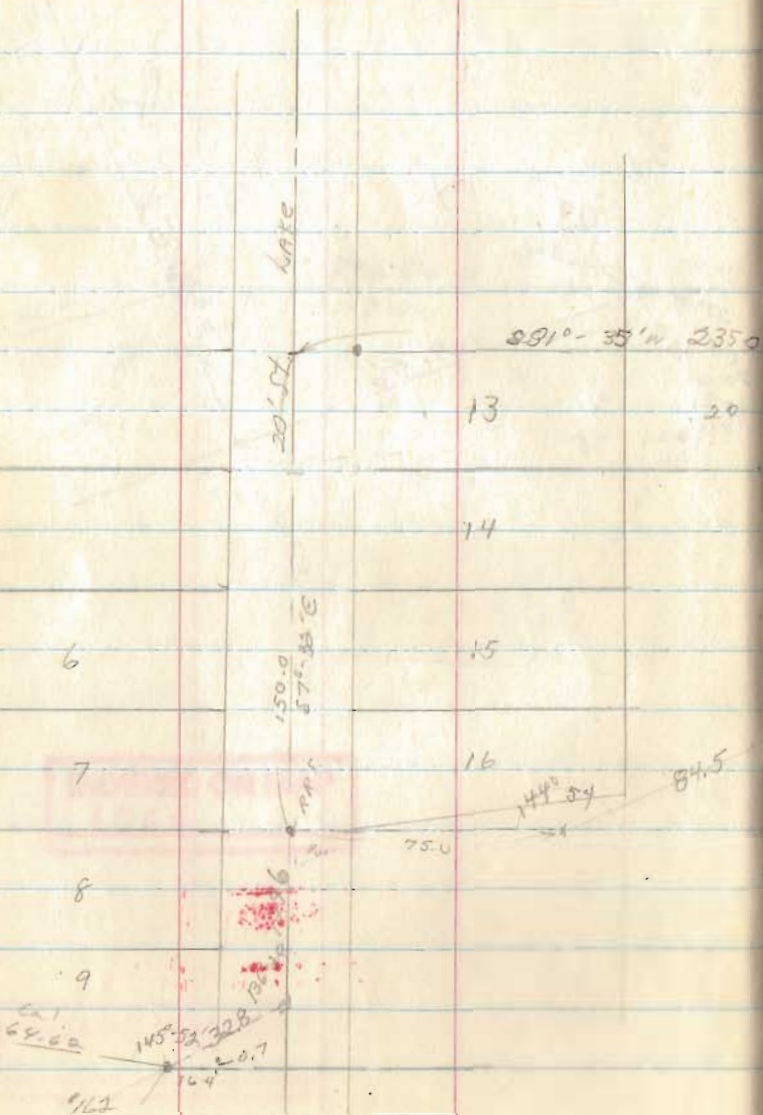 LAKE
S81°-33'W 235.0
20' St.
13
20
14
150.0
S7°-33'E
6
15
7
16
144° 54
84.5
75.0
8
9
Cal
64.62
145°-52' 32.8
16.4
0.7
#162